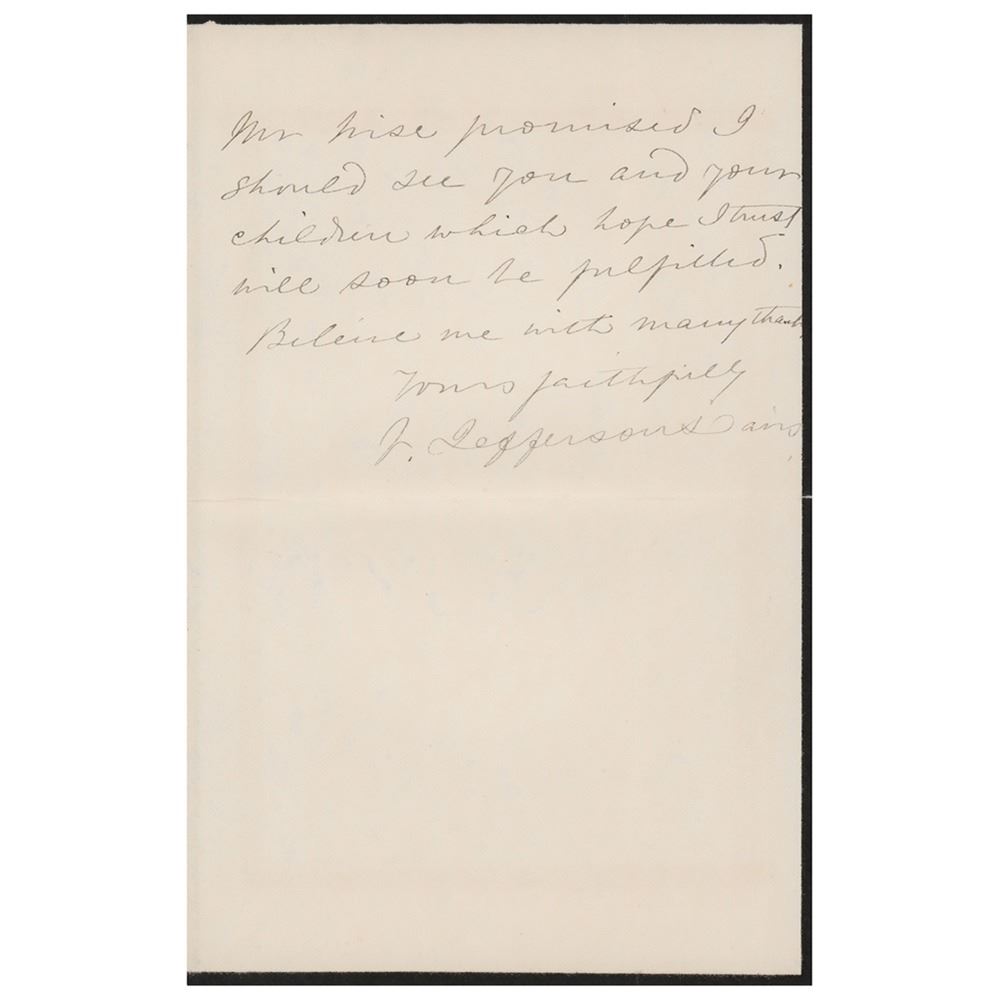 Mr Wise promised I
should see you and your
children which hope I trust
will soon be fulfilled.
Believe me with many thanks
Yours faithfully
V. Jefferson Davis